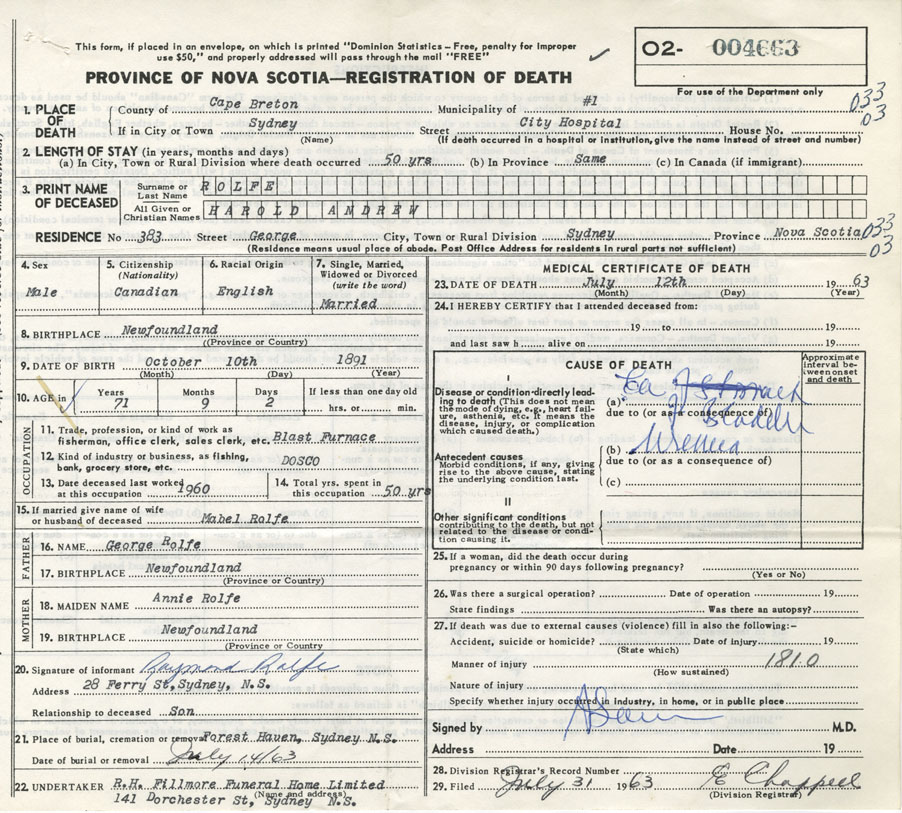 This form, if placed in an envelope, on which is printed "Dominion Statistics – Free, penalty for improper
use $50," and properly addressed will pass through the mail "FREE"
O2- 004663
PROVINCE OF NOVA SCOTIA—REGISTRATION OF DEATH
For use of the Department only
033
03
1. PLACE OF DEATH { County of Cape Breton Municipality of #1
If in City or Town Sydney (Name) Street City Hospital House No.
(If death occurred in a hospital or institution, give the name instead of street and number)
2. LENGTH OF STAY (in years, months and days)
(a) In City, Town or Rural Division where death occurred 50 yrs (b) In Province Same (c) In Canada (if immigrant)
3. PRINT NAME OF DECEASED { Surname or Last Name ROLFE
All Given or Christian Names HAROLD ANDREW
RESIDENCE No. 383 Street George City, Town or Rural Division Sydney Province Nova Scotia 033
(Residence means usual place of abode. Post Office Address for residents in rural parts not sufficient) 03
4. Sex Male
5. Citizenship (Nationality) Canadian
6. Racial Origin English
7. Single, Married, Widowed or Divorced (write the word) Married
8. BIRTHPLACE Newfoundland
((Province or Country)
9. DATE OF BIRTH October 10th 1891
(Month) (Day) (Year)
10. AGE in { Years 71 Months 9 Days 2 If less than one day old hrs. or min.
OCCUPATION
11. Trade, profession, or kind of work as
fisherman, office clerk, sales clerk, etc. Blast Furnace
12. Kind of industry or business, as fishing,
bank, grocery store, etc. DOSCO
13. Date deceased last worked at this occupation 1960
14. Total yrs. spent in this occupation 50 yrs
15. If married give name of wife
or husband of deceased Mabel Rolfe
FATHER
16. NAME George Rolfe
17. BIRTHPLACE Newfoundland
(Province or Country)
MOTHER
18. MAIDEN NAME Annie Rolfe
19. BIRTHPLACE Newfoundland
(Province or Country)
20. Signature of informant Raymond Rolfe
Address 28 Ferry St, Sydney, N.S.
Relationship to deceased Son
21. Place of burial, cremation or removal Forest Haven, Sydney N.S.
Date of burial or removal July 14/63
22. UNDERTAKER R.H. Fillmore Funeral Home Limited
(Name and address)
141 Dorchester St, Sydney N.S.
MEDICAL CERTIFICATE OF DEATH
23. DATE OF DEATH July 12th 19 63
(Month) (Day) (Year)
24. I HEREBY CERTIFY that I attended deceased from:
19 to 19
and last saw h alive on 19
CAUSE OF DEATH
Approximate interval between onset and death
I
Disease or condition directly leading to death (This does not mean the mode of dying, e.g., heart failure, asthenia, etc. It means the disease, injury, or complication which caused death.)
(a) Ca of Stomach
due to (or as a consequence of)
of Bladder
Antecedent causes
Morbid conditions, if any, giving rise to the above cause, stating the underlying condition last.
(b) Uremia
due to (or as a consequence of)
(c)
II
Other significant conditions
contributing to the death, but not related to the disease or condition causing it.
25. If a woman, did the death occur during
pregnancy or within 90 days following pregnancy?
(Yes or No)
26. Was there a surgical operation? Date of operation 19
State findings Was there an autopsy?
27. If death was due to external causes (violence) fill in also the following:-
Accident, suicide or homicide? Date of injury 19
(State which)
Manner of injury 181.0
(How sustained)
Nature of injury
Specify whether injury occurred in industry, in home, or in public place
Signed by M.D.
Address Date 19
28. Division Registrar's Record Number
29. Filed July 31 1963 E Chappell
(Division Registrar)